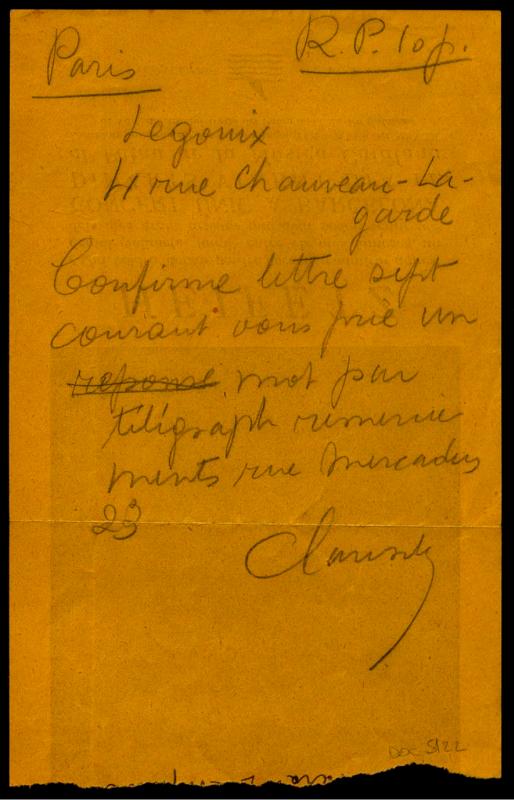 Paris
R. P. 10 p.
Legouix
4 rue Chauveau-La-
garde
Confirme lettre sept
courant vous prie un
reponse mot par
télégraph remercie
ments rue Mercaders
23
DOC 5122